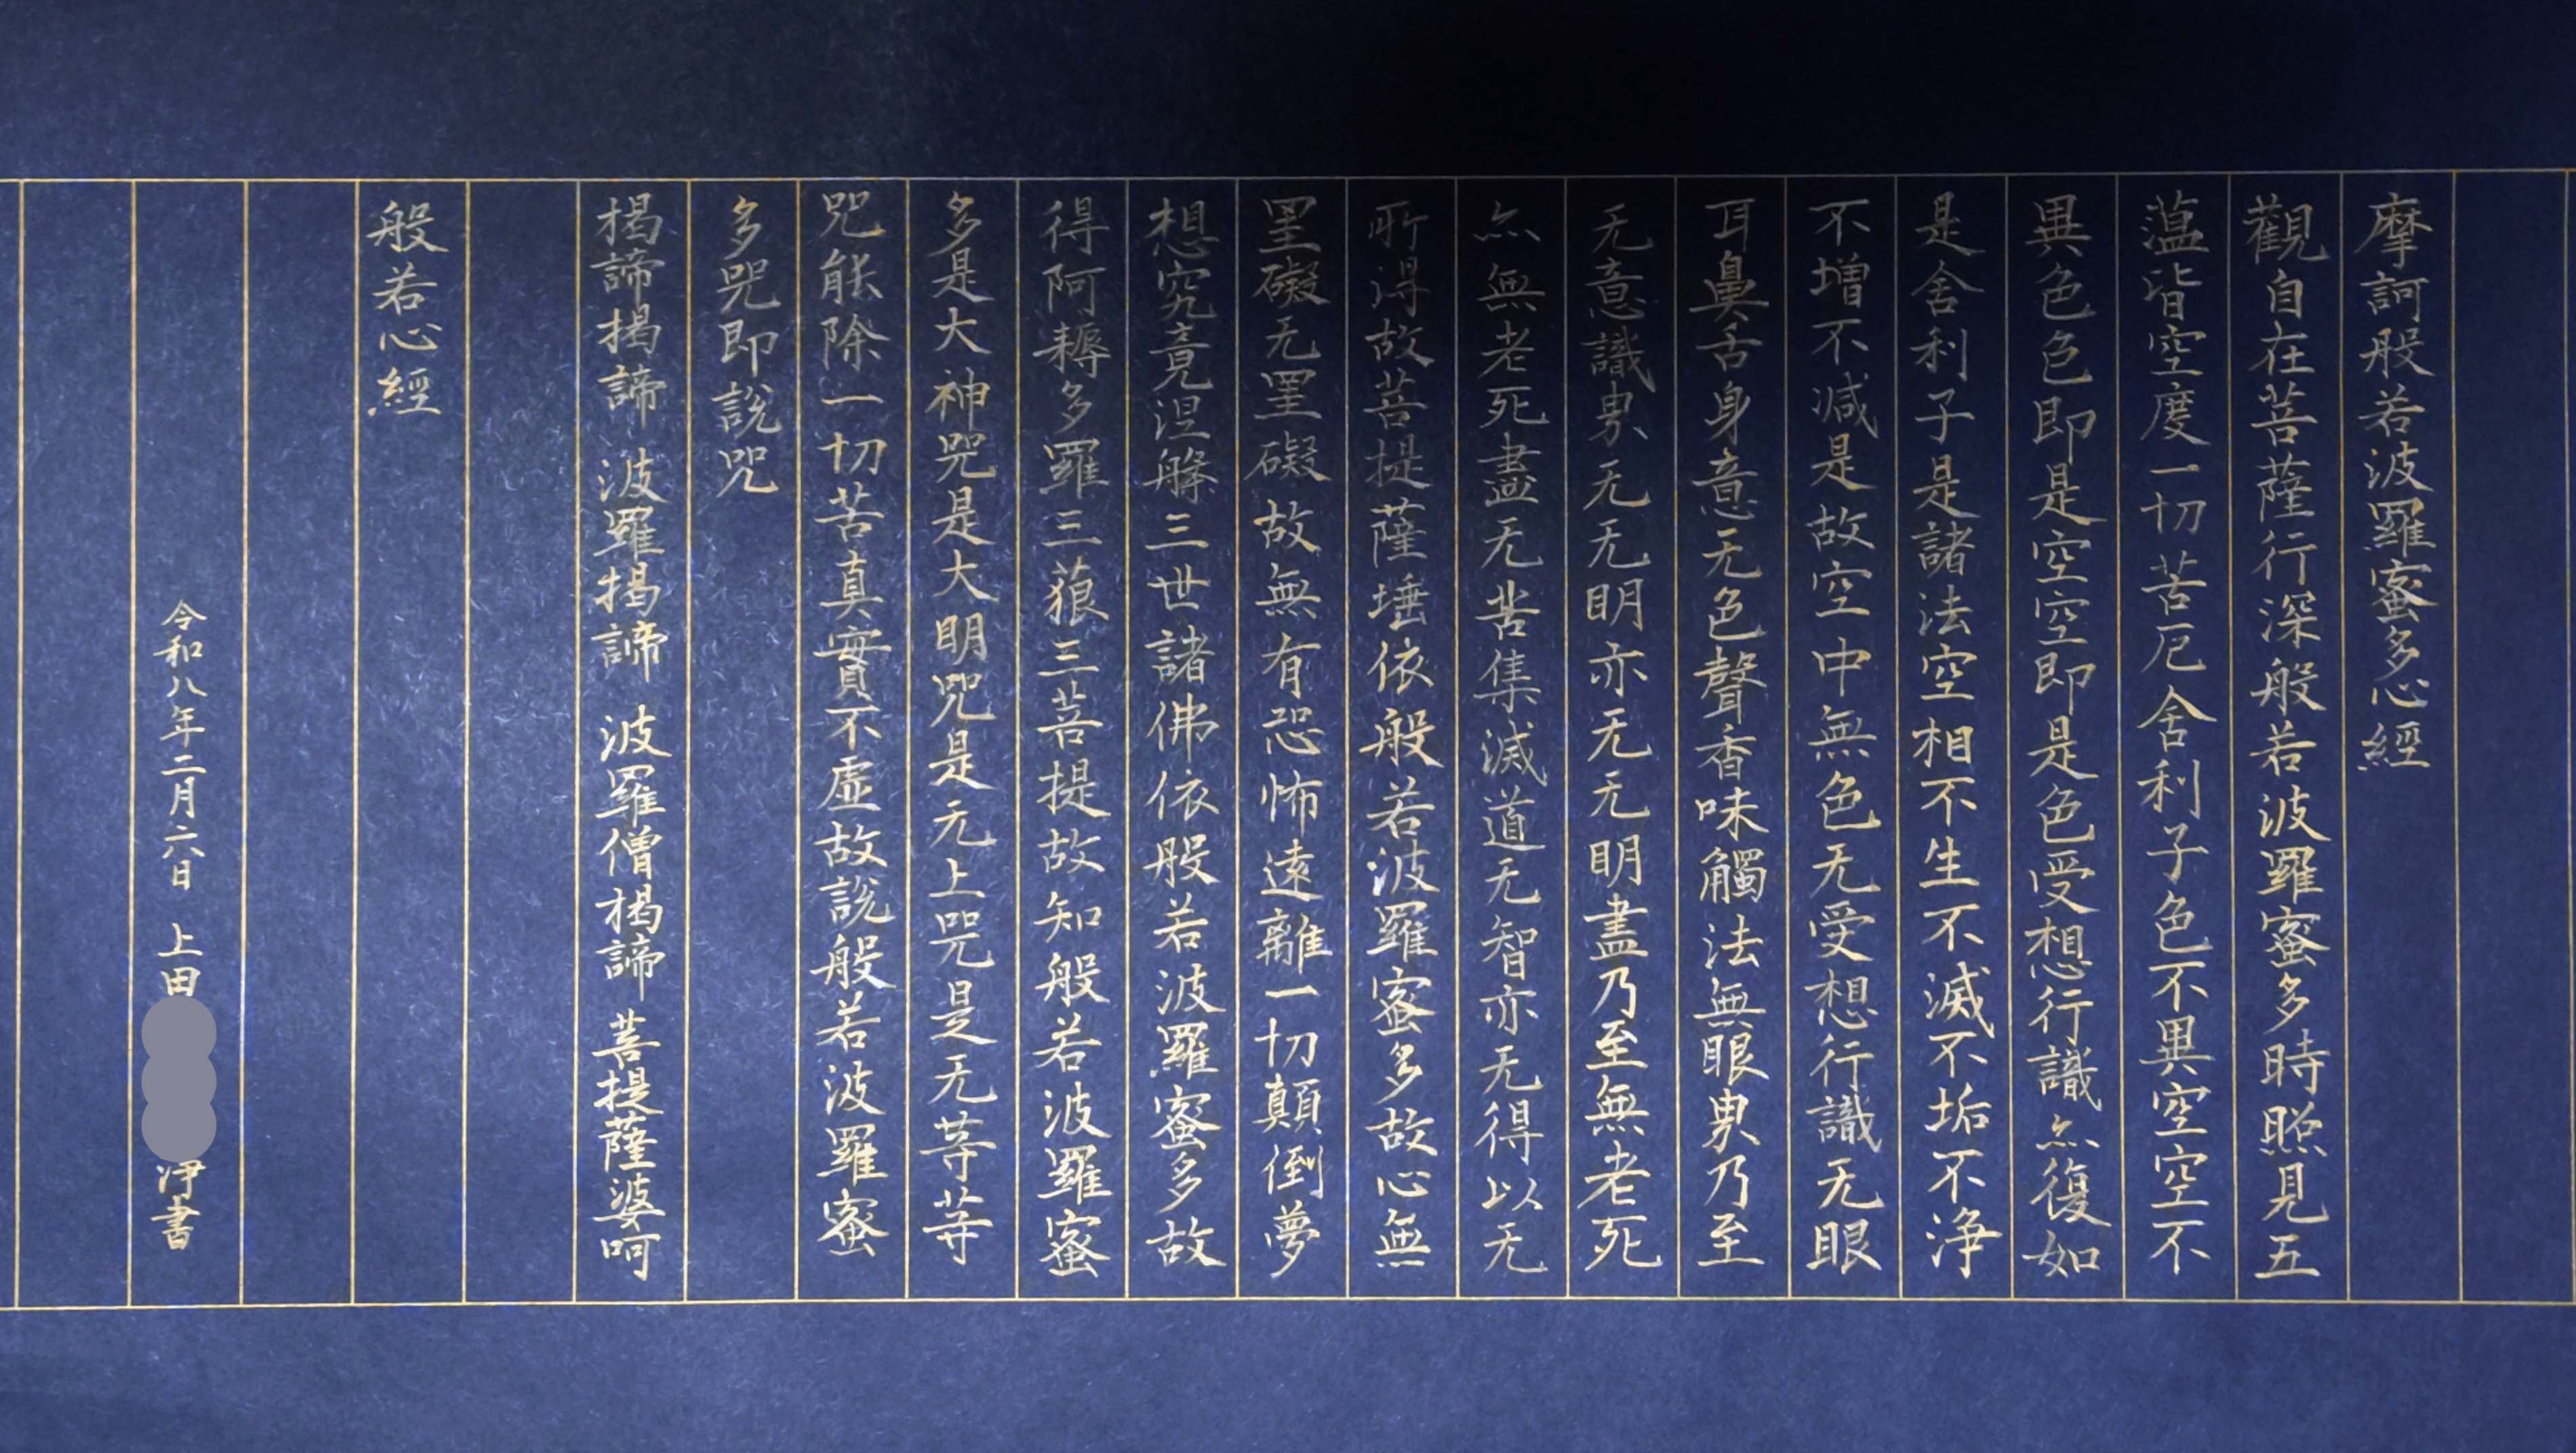 摩訶般若波羅蜜多心經
觀自在菩薩行深般若波羅蜜多時照見五
薀皆空度一切苦厄舍利子色不異空空不
異色色即是空空即是色受想行識亦復如
是舍利子是諸法空相不生不滅不垢不浄
不增不減是故空中無色无受想行識无眼
耳鼻舌身意无色聲香味觸法無眼界乃至
无意識界无无明亦无无明盡乃至無老死
亦無老死盡无苦集滅道无智亦无得以无
所得故菩提薩埵依般若波羅蜜多故心無
罣礙无罣礙故無有恐怖遠離一切顛倒夢
想究竟涅槃三世諸佛依般若波羅蜜多故
得阿耨多羅三藐三菩提故知般若波羅蜜
多是大神咒是大明咒是无上咒是无等等
咒能除一切苦真實不虛故説般若波羅蜜
多咒即説咒
揭諦揭諦 波羅揭諦 波羅僧揭諦 菩提薩婆呵
般若心經
令和八年二月六日 上田 浄書